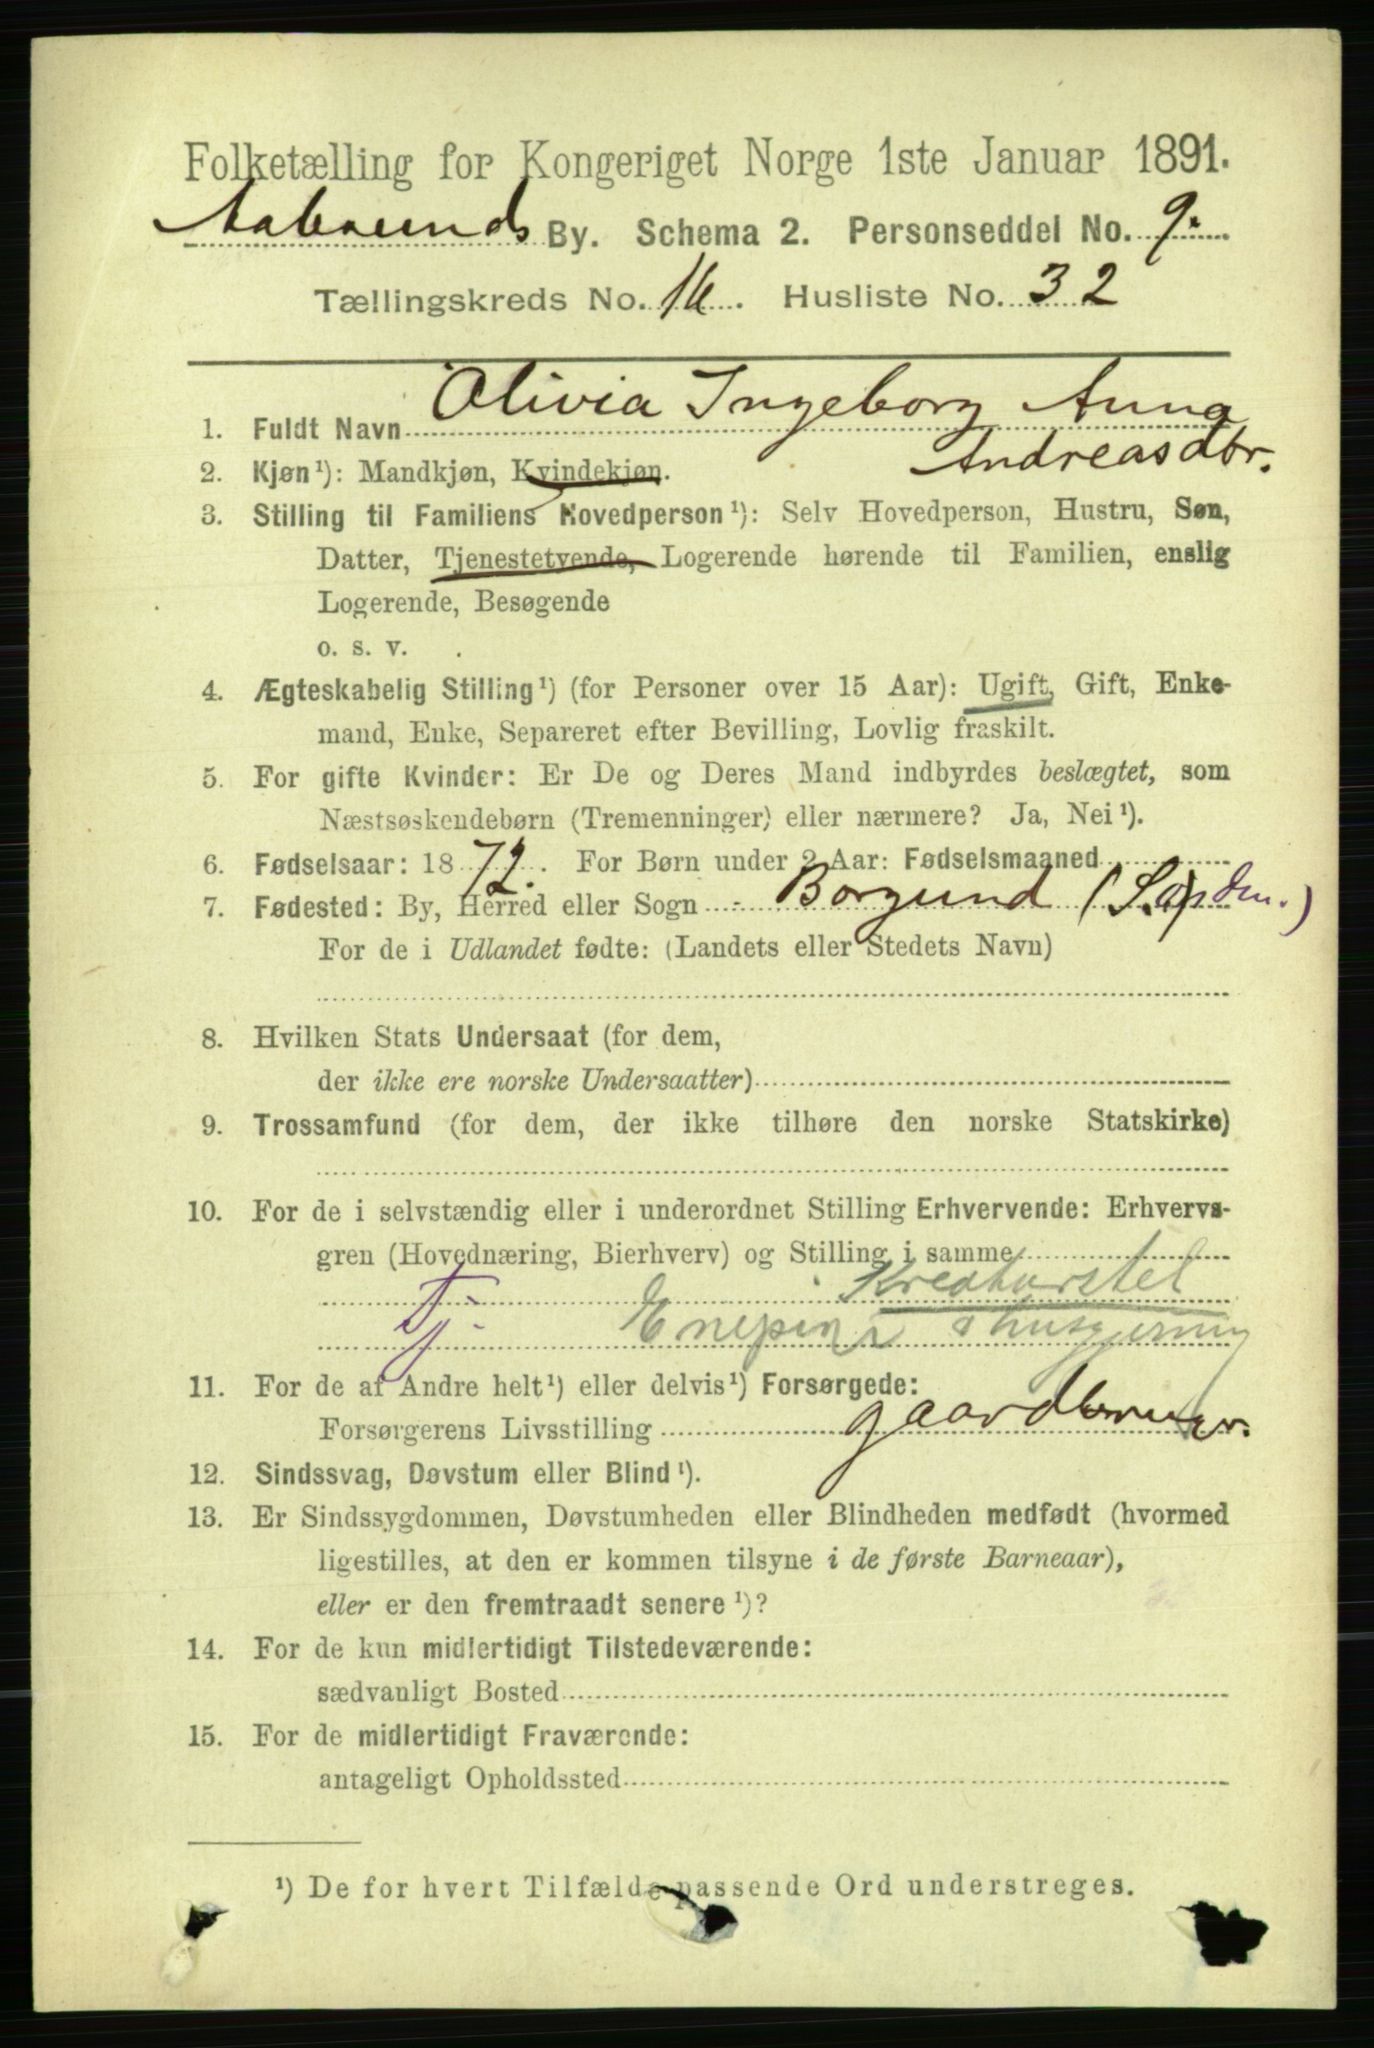 Folketælling for Kongeriget Norge 1ste Januar 1891.
Aalesunds By. Schema 2. Personseddel No. 9.
Tællingskreds No. 16. Husliste No. 32
1. Fuldt Navn Olivia Ingeborg Anna
Andreasdtr.
2. Kjøn¹): Mandkjøn, Kvindekjøn.
3. Stilling til Familiens Hovedperson¹): Selv Hovedperson, Hustru, Søn,
Datter, Tjenestetyende, Logerende hørende til Familien, enslig
Logerende, Besøgende
o. s. v.
4. Ægteskabelig Stilling¹) (for Personer over 15 Aar): Ugift, Gift, Enke-
mand, Enke, Separeret efter Bevilling, Lovlig fraskilt.
5. For gifte Kvinder: Er De og Deres Mand indbyrdes beslægtet, som
Næstsøskendebørn (Tremenninger) eller nærmere? Ja, Nei¹).
6. Fødselsaar: 1872. For Børn under 2 Aar: Fødselsmaaned
7. Fødested: By, Herred eller Sogn Borgund
For de i Udlandet fødte: (Landets eller Stedets Navn)
8. Hvilken Stats Undersaat (for dem,
der ikke ere norske Undersaatter)
9. Trossamfund (for dem, der ikke tilhøre den norske Statskirke)
10. For de i selvstændig eller i underordnet Stilling Erhvervende: Erhvervs-
gren (Hovednæring, Bierhverv) og Stilling i samme
Kreaturstel
Tj. Enepige Husgjerning
11. For de af Andre helt¹) eller delvis¹) Forsørgede:
Forsørgerens Livsstilling gaardbruger.
12. Sindssvag, Døvstum eller Blind¹).
13. Er Sindssygdommen, Døvstumheden eller Blindheden medfødt (hvormed
ligestilles, at den er kommen tilsyne i de første Barneaar),
eller er den fremtraadt senere¹)?
14. For de kun midlertidigt Tilstedeværende:
sædvanligt Bosted
15. For de midlertidigt Fraværende:
antageligt Opholdssted
¹) De for hvert Tilfælde passende Ord understreges.